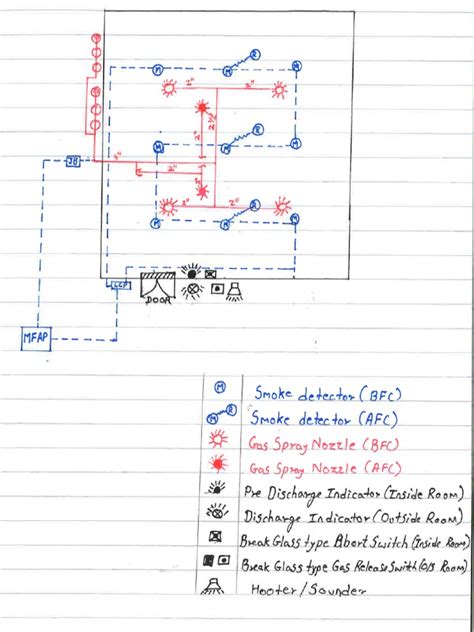 R
M
M
2"
2"
2"
2"
2 1/2"
R
M
M
4"
2"
JB
2"
2"
R
M
M
LCP
DOOR
MFAP
M Smoke detector (BFC)
M R Smoke detector (AFC)
Gas Spray Nozzle (BFC)
Gas Spray Nozzle (AFC)
Pre Discharge Indicator (Inside Room)
Discharge Indicator (Outside Room)
Break Glass type Abort Switch (Inside Room)
Break Glass type Gas Release Swith (O/S Room)
Hooter / Sounder